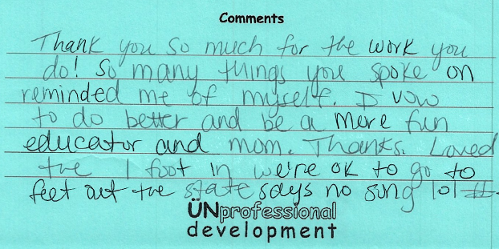 Comments
Thank you so much for the work you
do! So many things you spoke on
reminded me of myself. I vow
to do better and be a more fun
educator and mom. Thanks. Loved
the 1 foot in we're ok to go to
feet out the state says no song lol #
ÜNprofessional
development